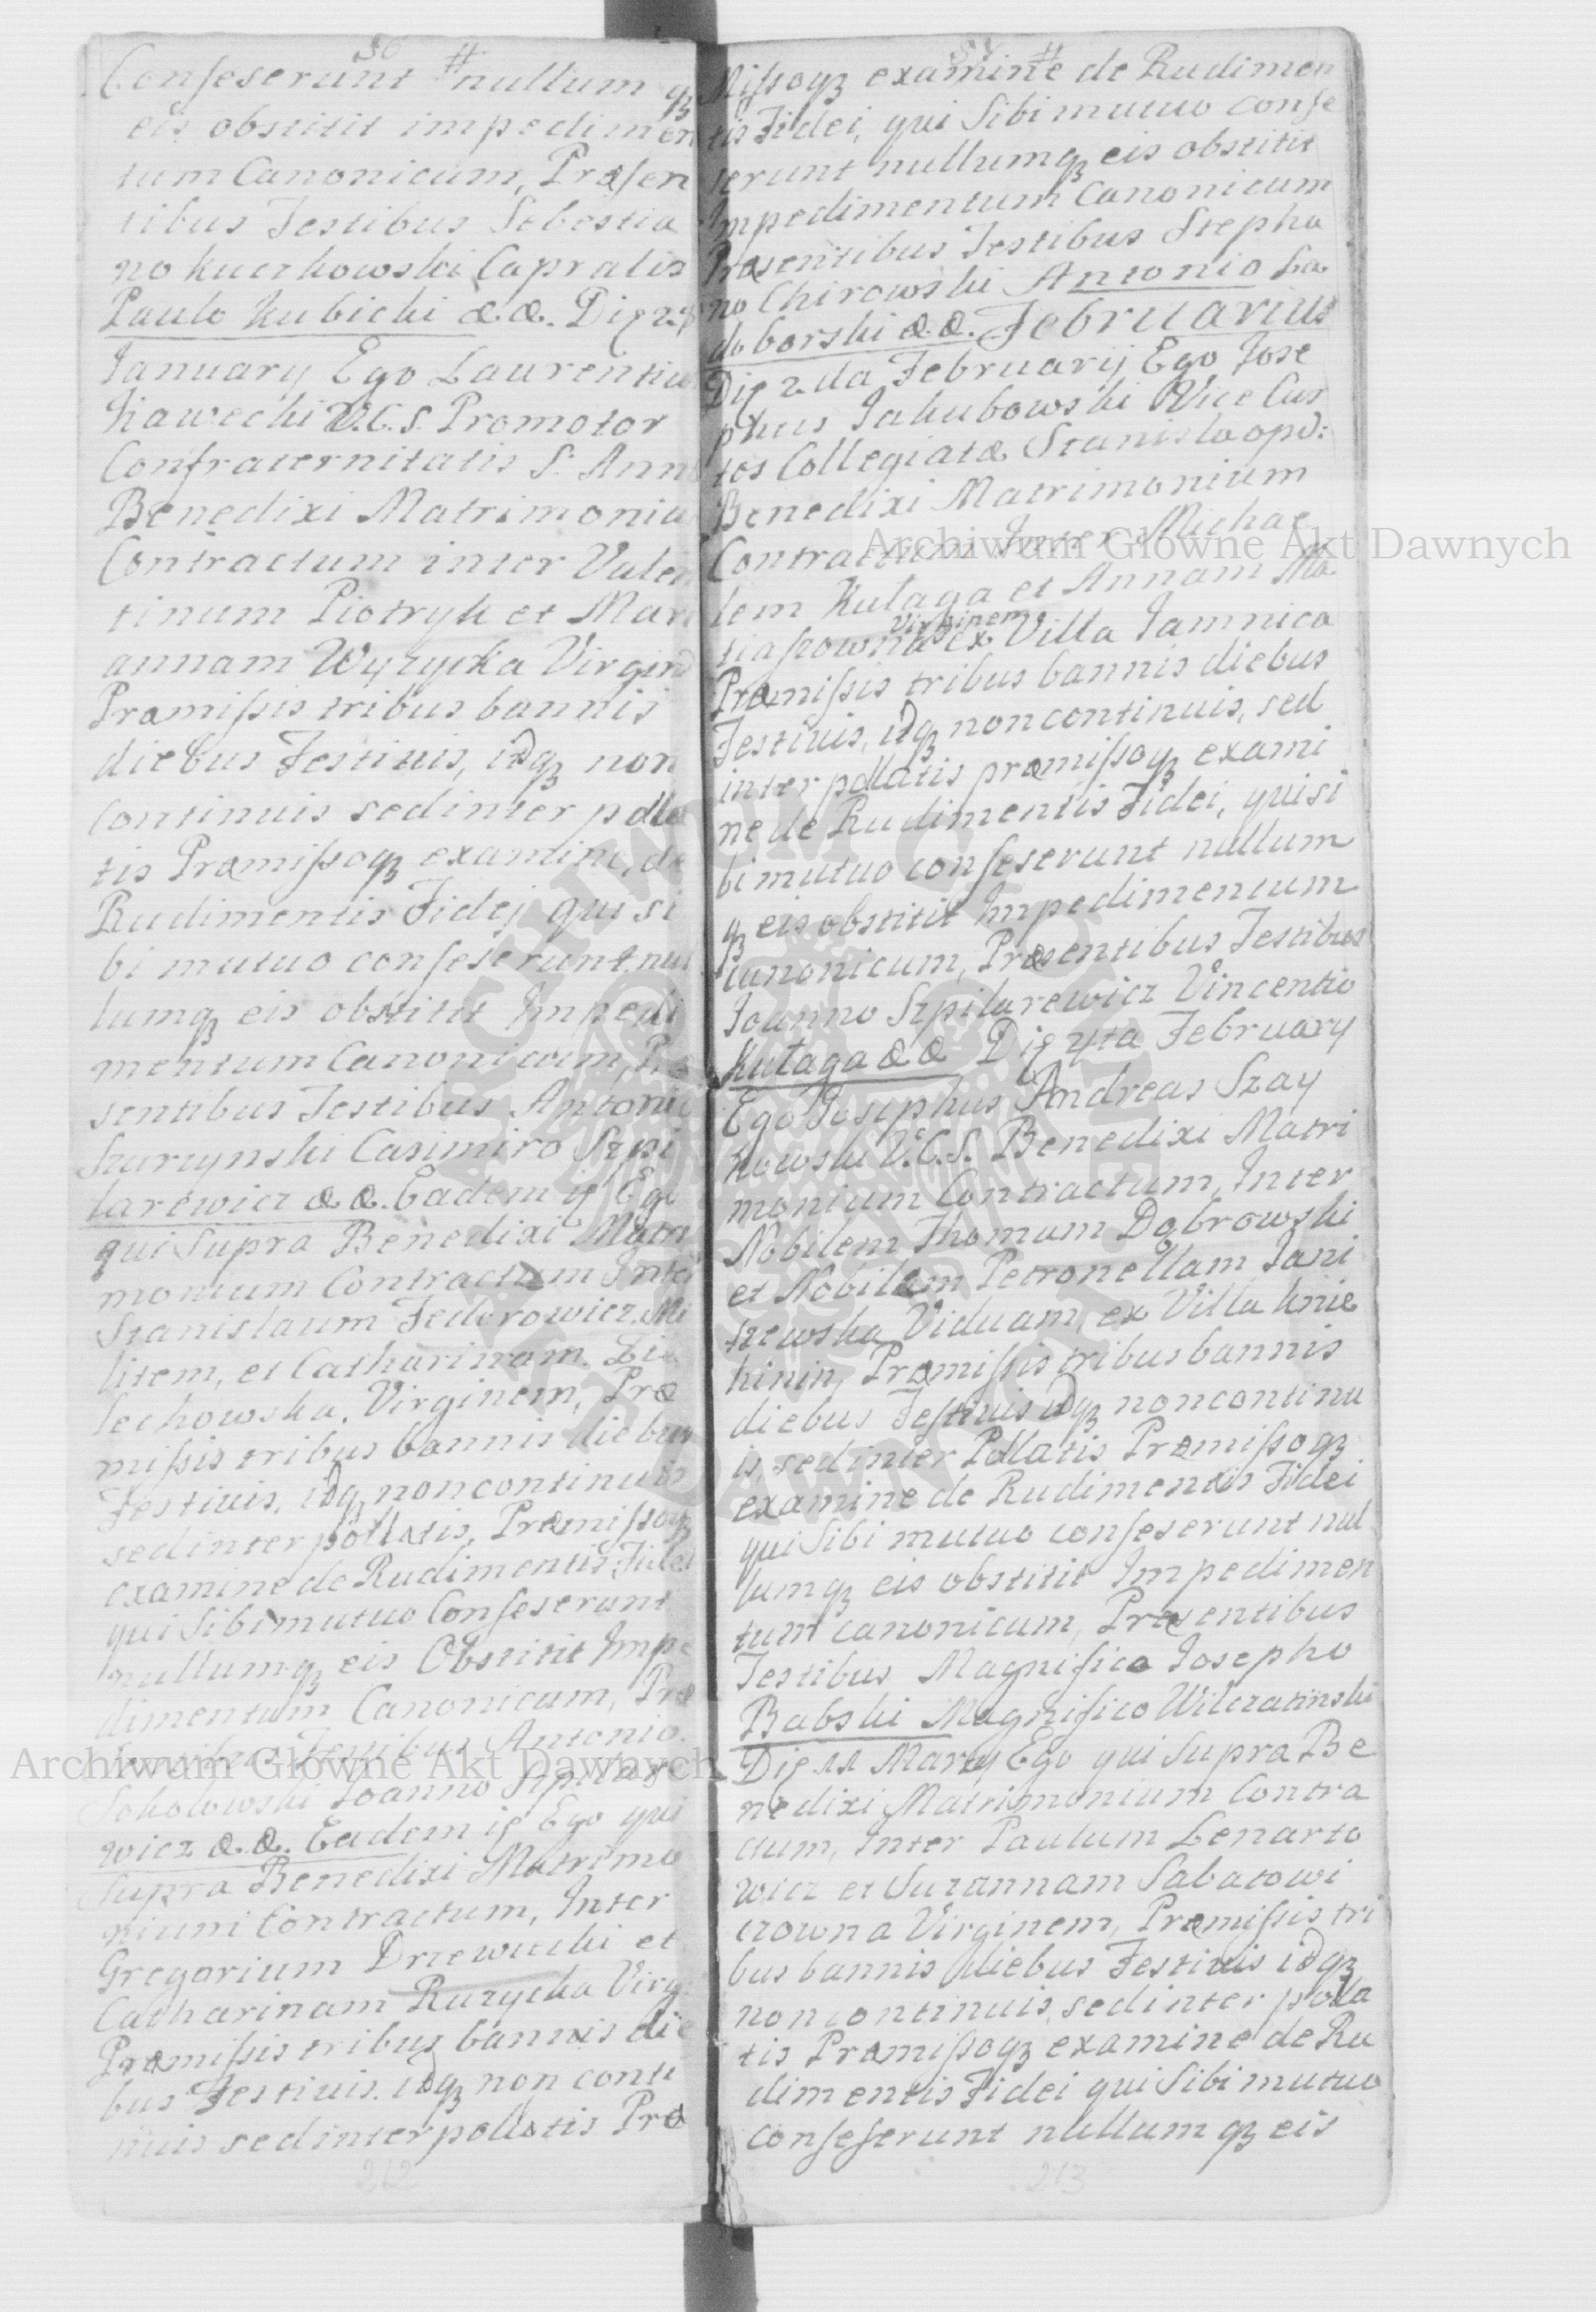 56 #
Conseserunt nullum qz
eis obstitit impedimen
tum Canonicum, Præsen
tibus Testibus Sebestia
no Kuczkowski Capralis
Paulo Kubicki &. &. Die
January Ego Laurentiu
Kawecki V.C.S. Promotor
Confraternitatis S: Ann
Benedixi Matrimoniu
Contractum inter Valen
tinum Piotryk et Mari
annam Wyzycka Virgin
Præmissis tribus bannis
diebus Festiuis, idqz non
continuis sed inter polla
tis Præmissoqz examine, de
Rudimentis Fidej qui si
bi mutuo conseserunt nul
lumqz eis obstitit Impedi
mentum Canonicum, Præ
sentibus Testibus Antonio
Szurzynski Casimiro Szpi
larewicz &. &. Eadem ip Ego
qui Supra Benedixi Matri
monium Contractum Inter
Stanislaum Fedorowicz, Mi
litem, et Catharinam
lechowska, Virginem, Præ
missis tribus bannis diebus
Festiuis, idqz non continuis
sed inter pollatis, Præmissoqz
examine de Rudimentis Fidei
qui Sibi mutuo Conseserunt
nullumqz eis Obstitit Impe
dimentum Canonicum, Præ
sentibus Testibus Antonio
Sokolowski Joanno Szpilare
wicz &. &. Eadem ip Ego qui
Supra Benedixi Matrimo
nium Contractum, Inter
Gregorium Drzewiecki et
Catharinam Ruzycka Virg
Præmissis tribus bannis die
bus Festiuis. idqz non conti
nuis sed inter pollatis Præ
212
57 #
Missoqz examine de Rudimen
tis Fidei, qui Sibi mutuo conse
serunt nullumqz eis obstitit
Impedimentum Canonicum
Præsentibus Testibus Stepha
no Chirowski Antonio La
doborski &. &. Februarius
Die 2da Februarij Ego Jose
phus Jakubowski Vice Cus
tos Collegiatæ Stanislaopo:
Benedixi Matrimonium
Contractum Inter Michae
lem Kulaga et Annam Ma
virginem
tiaszowna ex Villa Jamnica
Præmissis tribus bannis diebus
Festiuis, idqz non continuis, sed
inter pollatis præmissoqz exami
ne de Rudimentis Fidei, qui si
bi mutuo conseserunt nullum
qz eis obstitit Impedimentum
canonicum, Præsentibus Testibus
Joanno Szpilarewicz Vincentio
Kutaga & & Die 4ta February
Ego Josephus Andreas Szay
kowski V.C.S. Benedixi Matri
monium Contractum, Inter
Nobilem Thomam Dobrowski
et Nobilem Petronellam Jani
szewska Viduam, ex Villa Knie
hinin, Præmissis tribus bannis
diebus Festiuis idqz non continu
is sed inter Pollatis Præmissoqz
examine de Rudimentis Fidei
qui Sibi mutuo conseserunt nul
lumqz eis obstitit Impedimen
tum canonicum, Præsentibus
Testibus Magnifico Josepho
Babski Magnifico Wilczatinski
Die 11 Marty Ego qui Supra Be
nedixi Matrimonium Contra
ctum, Inter Paulum Lenarto
wicz et Suzannam Sabatowi
czowna Virginem, Præmissis tri
bus bannis diebus Festiuis idqz
non continuis, sed inter polla
tis Præmissoqz examine de Ru
dimentis Fidei qui Sibi mutuo
conseserunt nullum qz eis
213
Archiwum Główne Akt Dawnych
Archiwum Główne Akt Dawnych